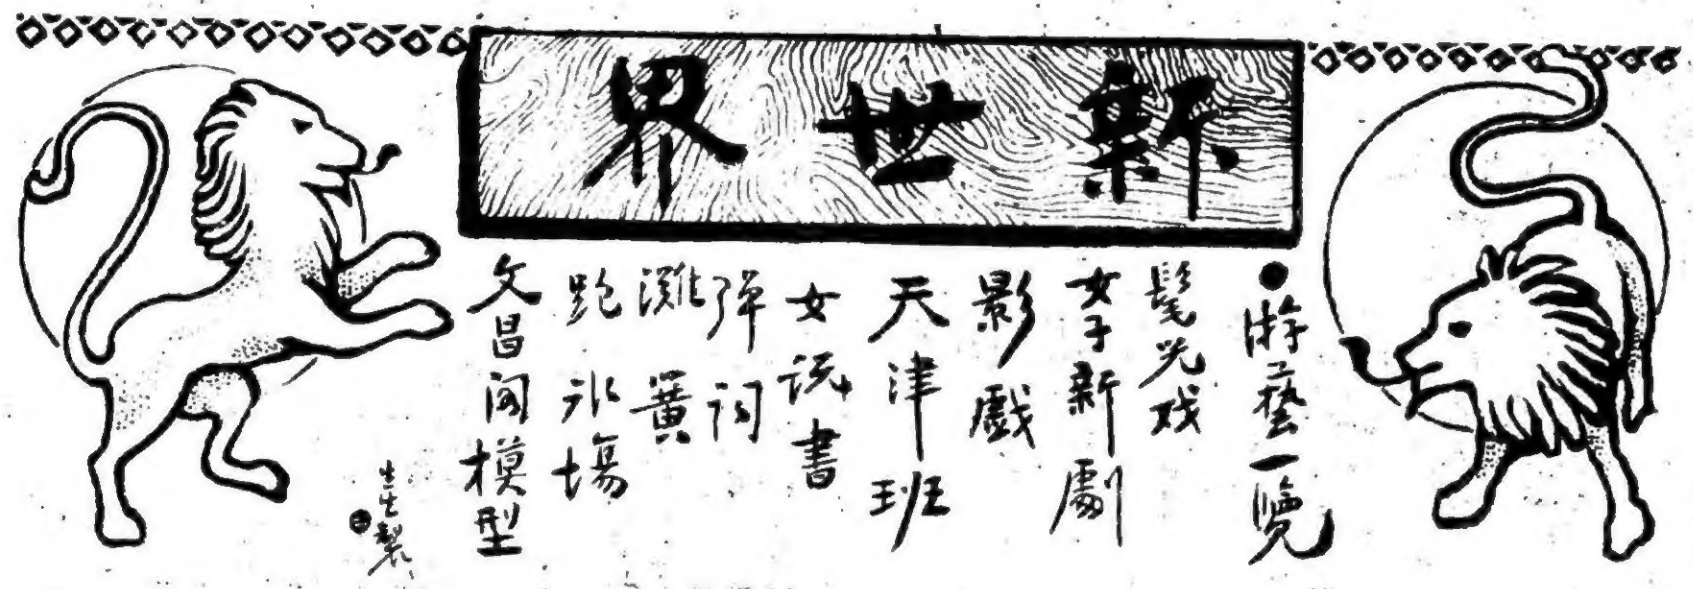 新世界
●游藝一覽
髦児戏
女子新劇
影戲
天津班
女説書
弹词
灘簧
跑冰場
文昌阁模型
生生製